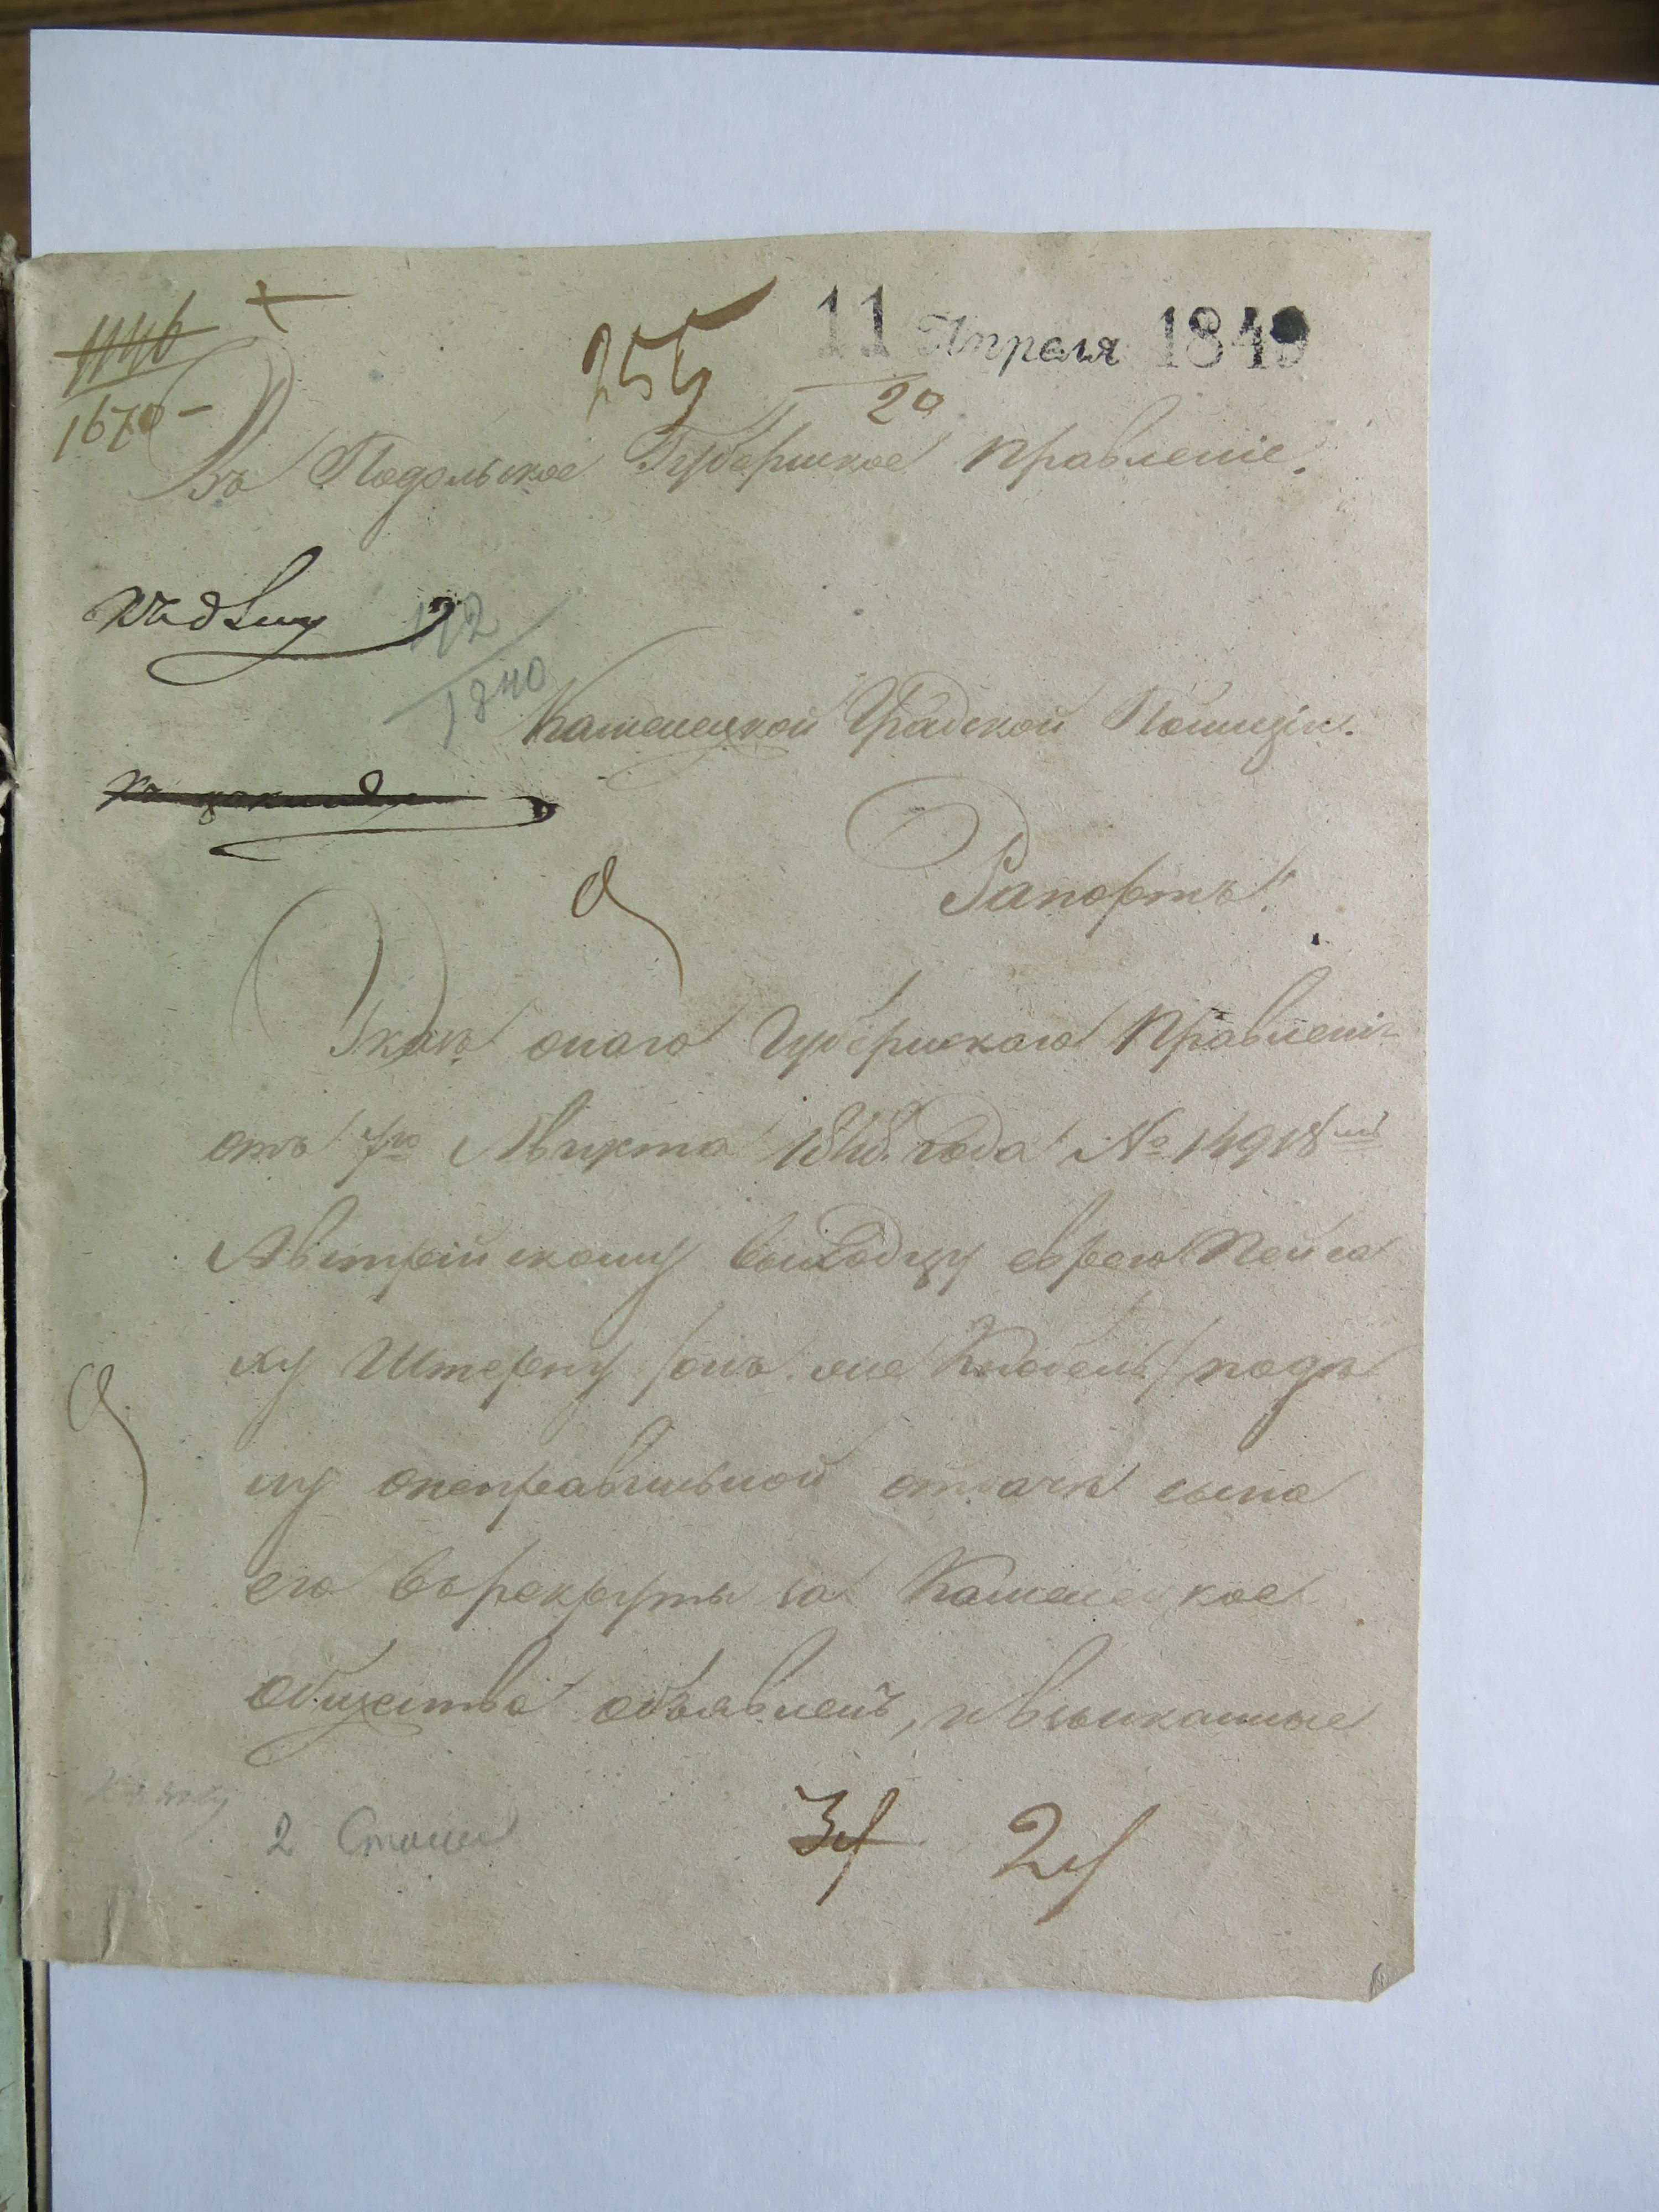 1146
1670 -
255
11 Апреля 1849
20
Въ Подольское Губернское Правленіе.
Къ дѣлу
1840
Каменецкой Градской Полиціи.
Рапортъ.
Указъ онаго Губернскаго Правленія
отъ 7го Августа 1848. года № 14918
Австрійскому выходцу еврею Пейса
ху Штерну /онъ же /подѣ
лу онеправильной отдачи сына
его въ рекруты за Каменецкое
общество объявленъ, и взысканные
2 Столъ